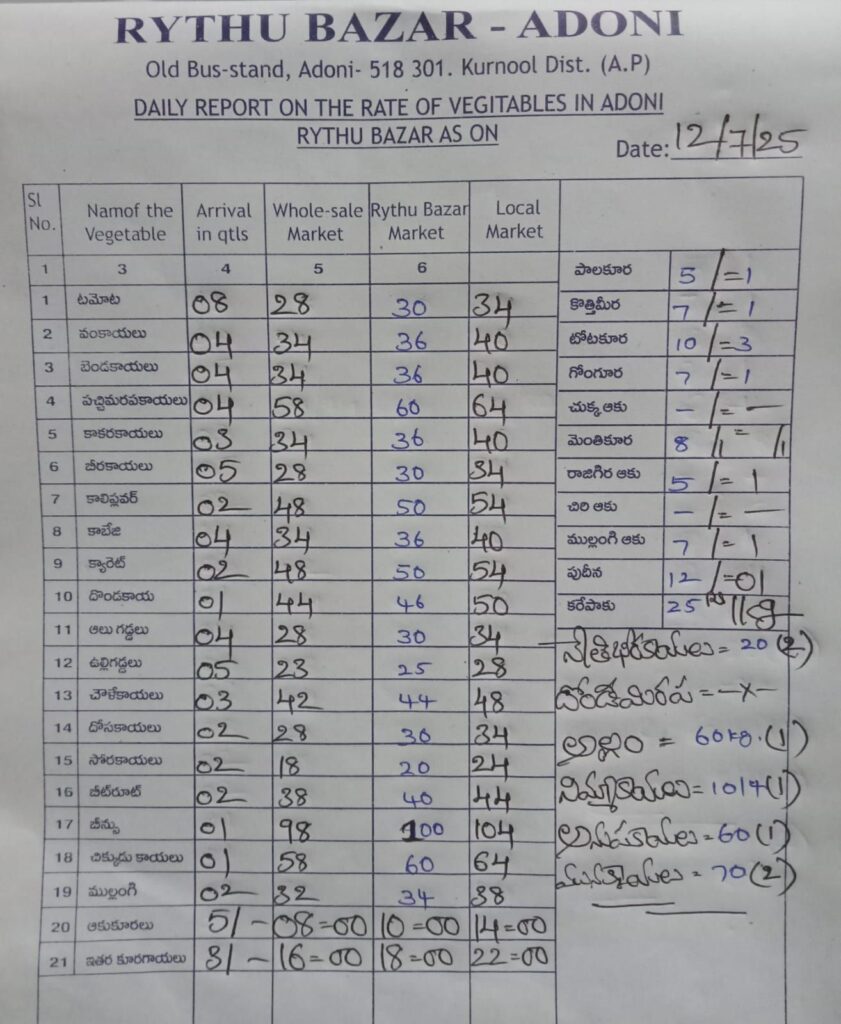 RYTHU BAZAR - ADONI
Old Bus-stand, Adoni- 518 301. Kurnool Dist. (A.P)
DAILY REPORT ON THE RATE OF VEGITABLES IN ADONI
RYTHU BAZAR AS ON
Date: 12/7/25
Sl No. Namof the Vegetable Arrival in qtls Whole-sale Market Rythu Bazar Market Local Market
1 3 4 5 6
1 టమోట 08 28 30 34
2 వంకాయలు 04 34 36 40
3 బెండకాయలు 04 34 36 40
4 పచ్చిమిరపకాయలు 04 58 60 64
5 కాకరకాయలు 03 34 36 40
6 బీరకాయలు 05 28 30 34
7 కాలిఫ్లవర్ 02 48 50 54
8 కాబేజి 04 34 36 40
9 క్యారెట్ 02 48 50 54
10 దొండకాయ 01 44 46 50
11 ఆలు గడ్డలు 04 28 30 34
12 ఉల్లిగడ్డలు 05 23 25 28
13 చౌళేకాయలు 03 42 44 48
14 దోసకాయలు 02 28 30 34
15 సోరకాయలు 02 18 20 24
16 బీట్‌రూట్ 02 38 40 44
17 బీన్సు 01 98 100 104
18 చిక్కుడు కాయలు 01 58 60 64
19 ముల్లంగి 02 32 34 38
20 ఆకుకూరలు 5/- 08=00 10=00 14=00
21 ఇతర కూరగాయలు 3/- 16=00 18=00 22=00
పాలకూర 5 /=1
కొత్తిమీర 7 /= 1
టోటకూర 10 /=3
గోంగూర 7 /=1
చుక్క ఆకు - /= -
మెంతికూర 8 /1 = /1
రాజిగిర ఆకు 5 /= 1
చిరి ఆకు - /= -
ముల్లంగి ఆకు 7 /= 1
పుదీన 12 /=01
కరేపాకు 25
= 20 (2)
= -x-
అల్లం = 60kg.(1)
నిమ్మకాయలు = 10/4(1)
= 60(1)
మునక్కాయలు = 70(2)